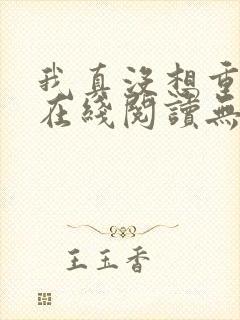 我真没想重
在綫閱讀無
王玉香